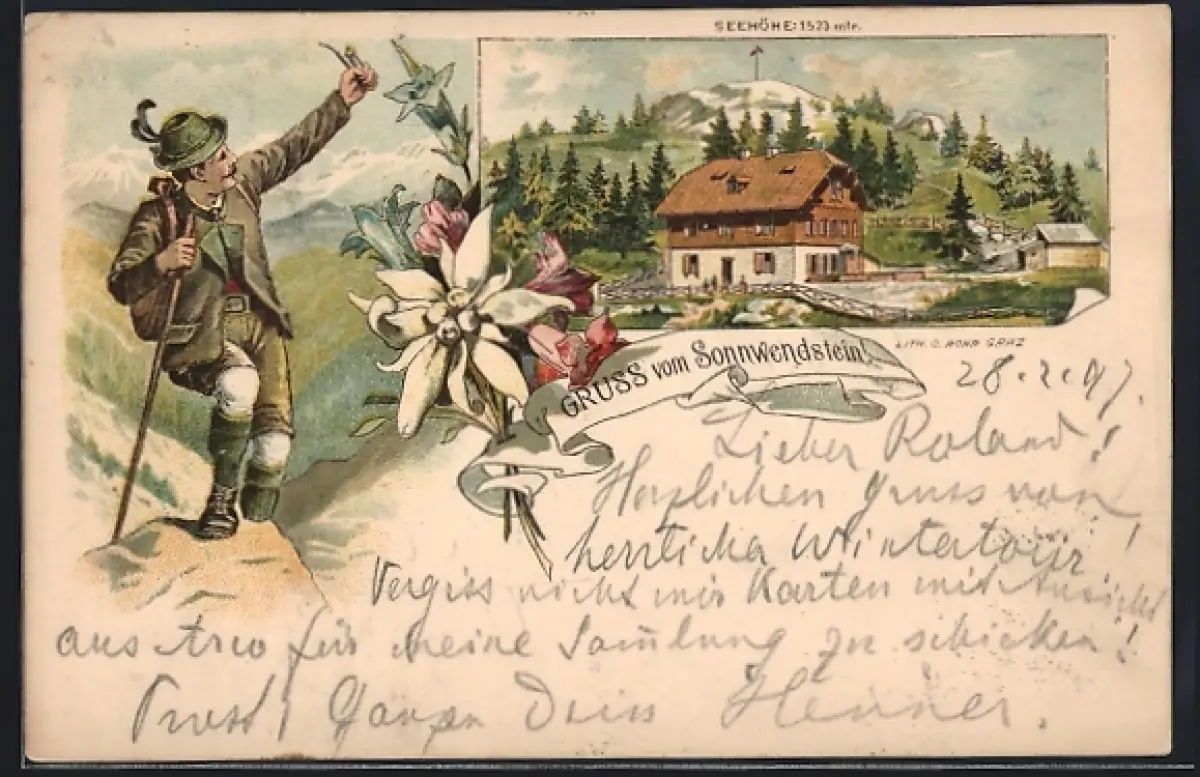 SEEHÖHE: 1523 mtr.
GRUSS vom Sonnwendstein!
LITH. O. ROHR GRAZ
28.2.97.
Lieber Roland!
Herzlichen Gruss von
herrlicher Wintertour!
Vergiss nicht mir Karten mit Ansicht
aus Arco für meine Sam̄lung zu schicken!
Prost! Ganzn Dein Henner.